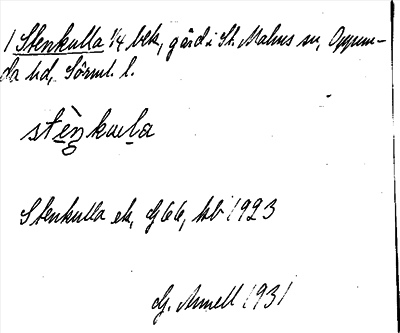 1 Stenkulla 1/4 bek, gård i St. Malms sn, Oppun-
da hd, Sörml. l.
stèŋkula
Stenkulla ek, G66, kb 1923
G. Annell 1931